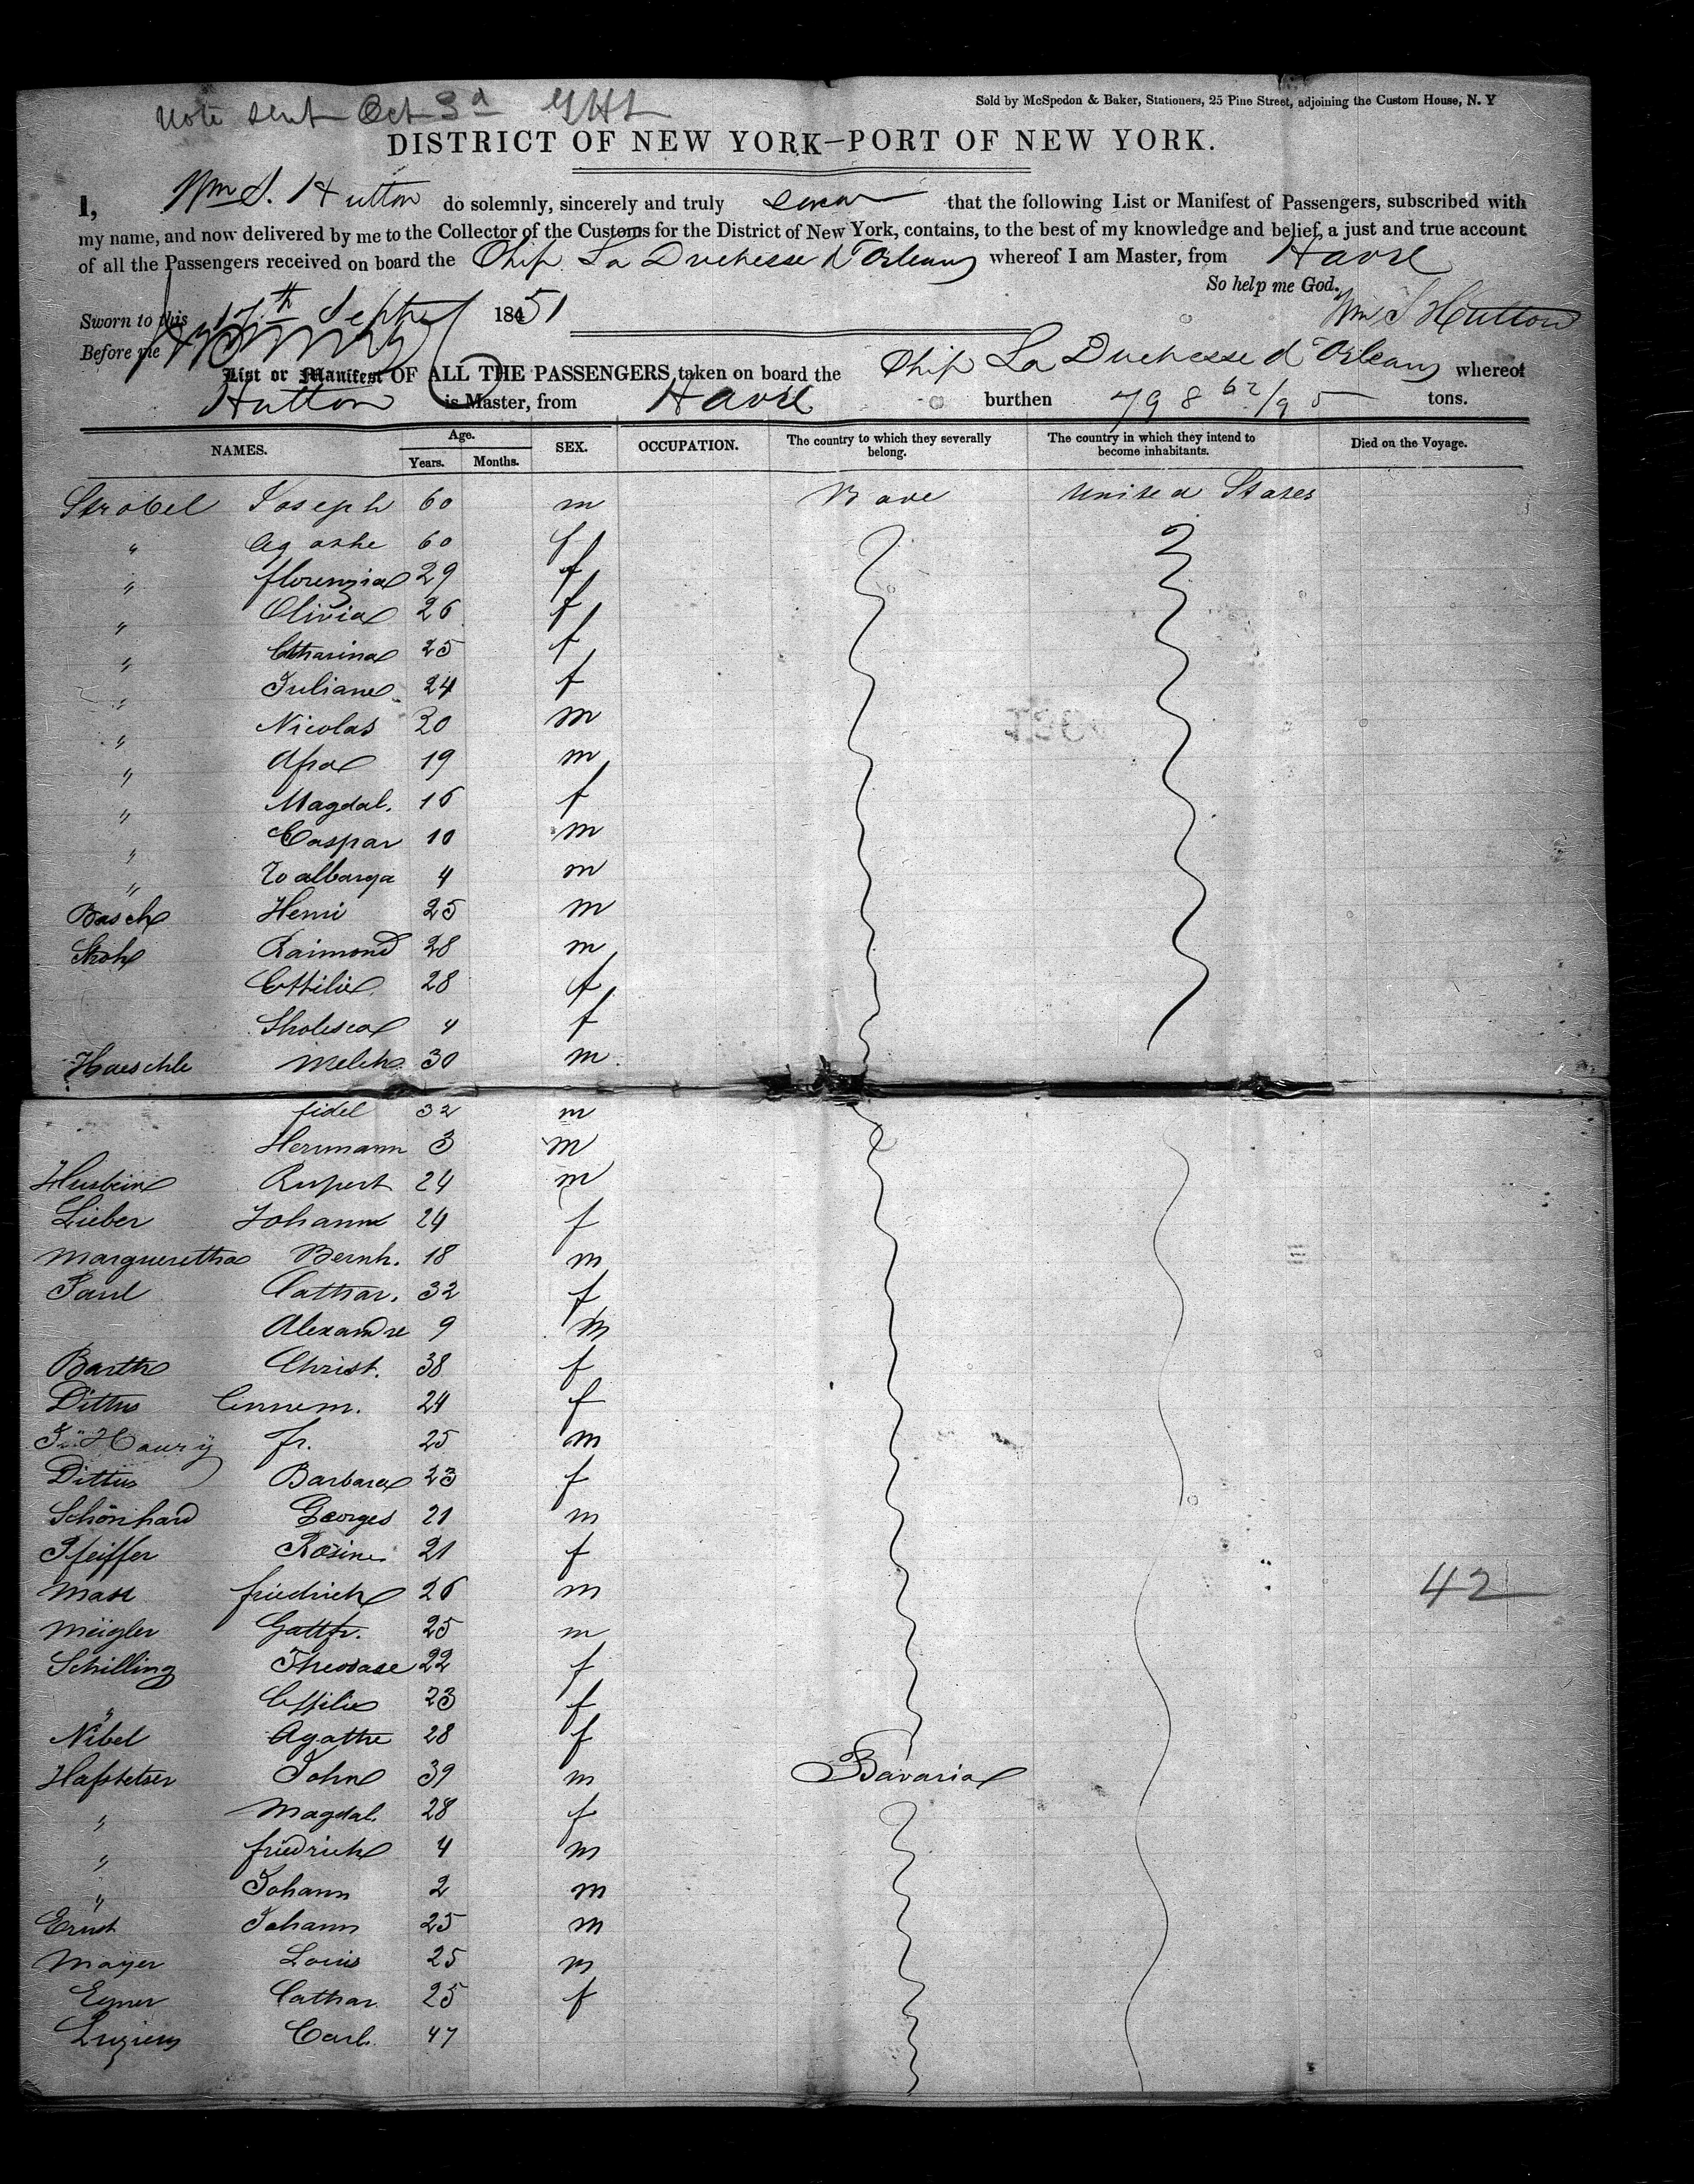 Note sent Oct 3d
Sold by McSpedon & Baker, Stationers, 25 Pine Street, adjoining the Custom House, N. Y
DISTRICT OF NEW YORK—PORT OF NEW YORK.
I, Wm S. Hutton do solemnly, sincerely and truly swear that the following List or Manifest of Passengers, subscribed with
my name, and now delivered by me to the Collector of the Customs for the District of New York, contains, to the best of my knowledge and belief, a just and true account
of all the Passengers received on board the Ship La Duchesse d'Orleans whereof I am Master, from Havre
So help me God.
Sworn to this 17th Septr 1851 Wm S Hutton
Before me
List or Manifest OF ALL THE PASSENGERS taken on board the Ship La Duchesse d'Orleans whereof
Hutton is Master, from Havre burthen 798 62/95 tons.
NAMES. Age. SEX. OCCUPATION. The country to which they severally belong. The country in which they intend to become inhabitants. Died on the Voyage.
Years. Months.
Strobel Joseph 60 m Bade United States
" Agathe 60 f
" florenzia 29 f
" Olivia 26 f
" Catharina 25 f
" Juliane 24 f
" Nicolas 20 m
" Afra 19 m
" Magdal. 16 f
" Caspar 10 m
" Walbarga 4 m
Basch Henri 25 m
Stroh Raimond 28 m
Ottilie 28 f
4 f
Haeschle Melch. 30 m
fidel 32 m
Herrmann 3 m
Rupert 24 m
Lieber Johanna 24 f
Margueretha Bernh. 18 m
Paul Cathar. 32 f
Alexandre 9 m
Barth Christ. 38 f
Dittus 24 f
Haury fr. 25 m
Dittus Barbara 23 f
Schönhard Georges 21 m
Pfeiffer Rosine 21 f
Mast friedrich 26 m 42
Meigler Gottfr. 25 m
Schilling 22 f
" 23 f
Nibel Agathe 28 f
Hafstetser John 39 m Bavaria
" Magdal. 28 f
" friedrich 4 m
" Johann 2 m
Ernst Johann 25 m
Mayer Louis 25 m
Cathar. 25 f
Carl 47